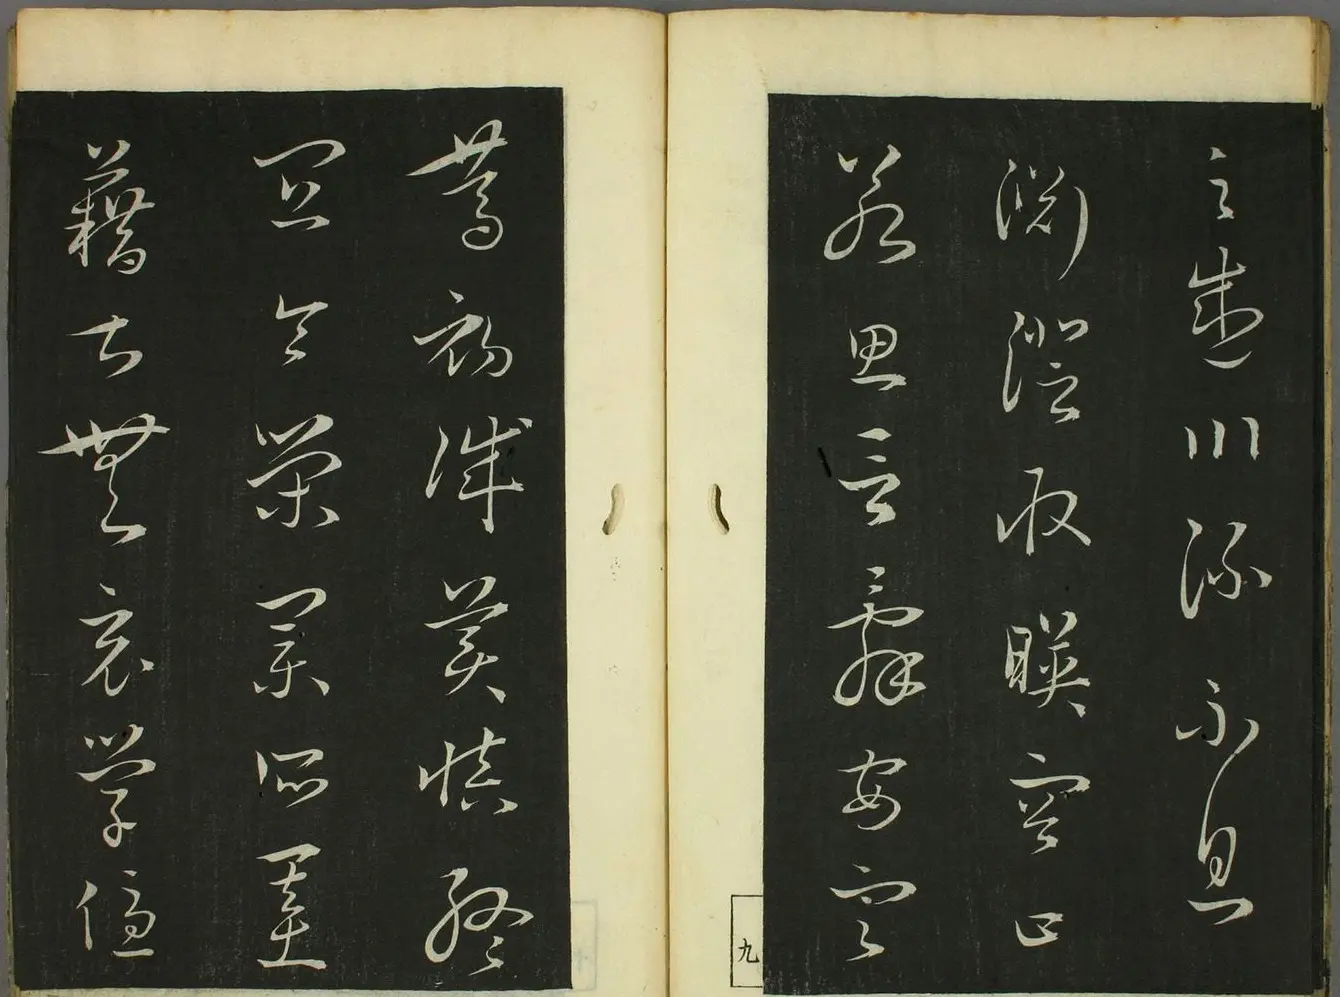 之盛川流不息
淵澄取暎容止
若思言辭安定
九
篤初誠美慎終
宜令榮業所基
藉甚無竟學優